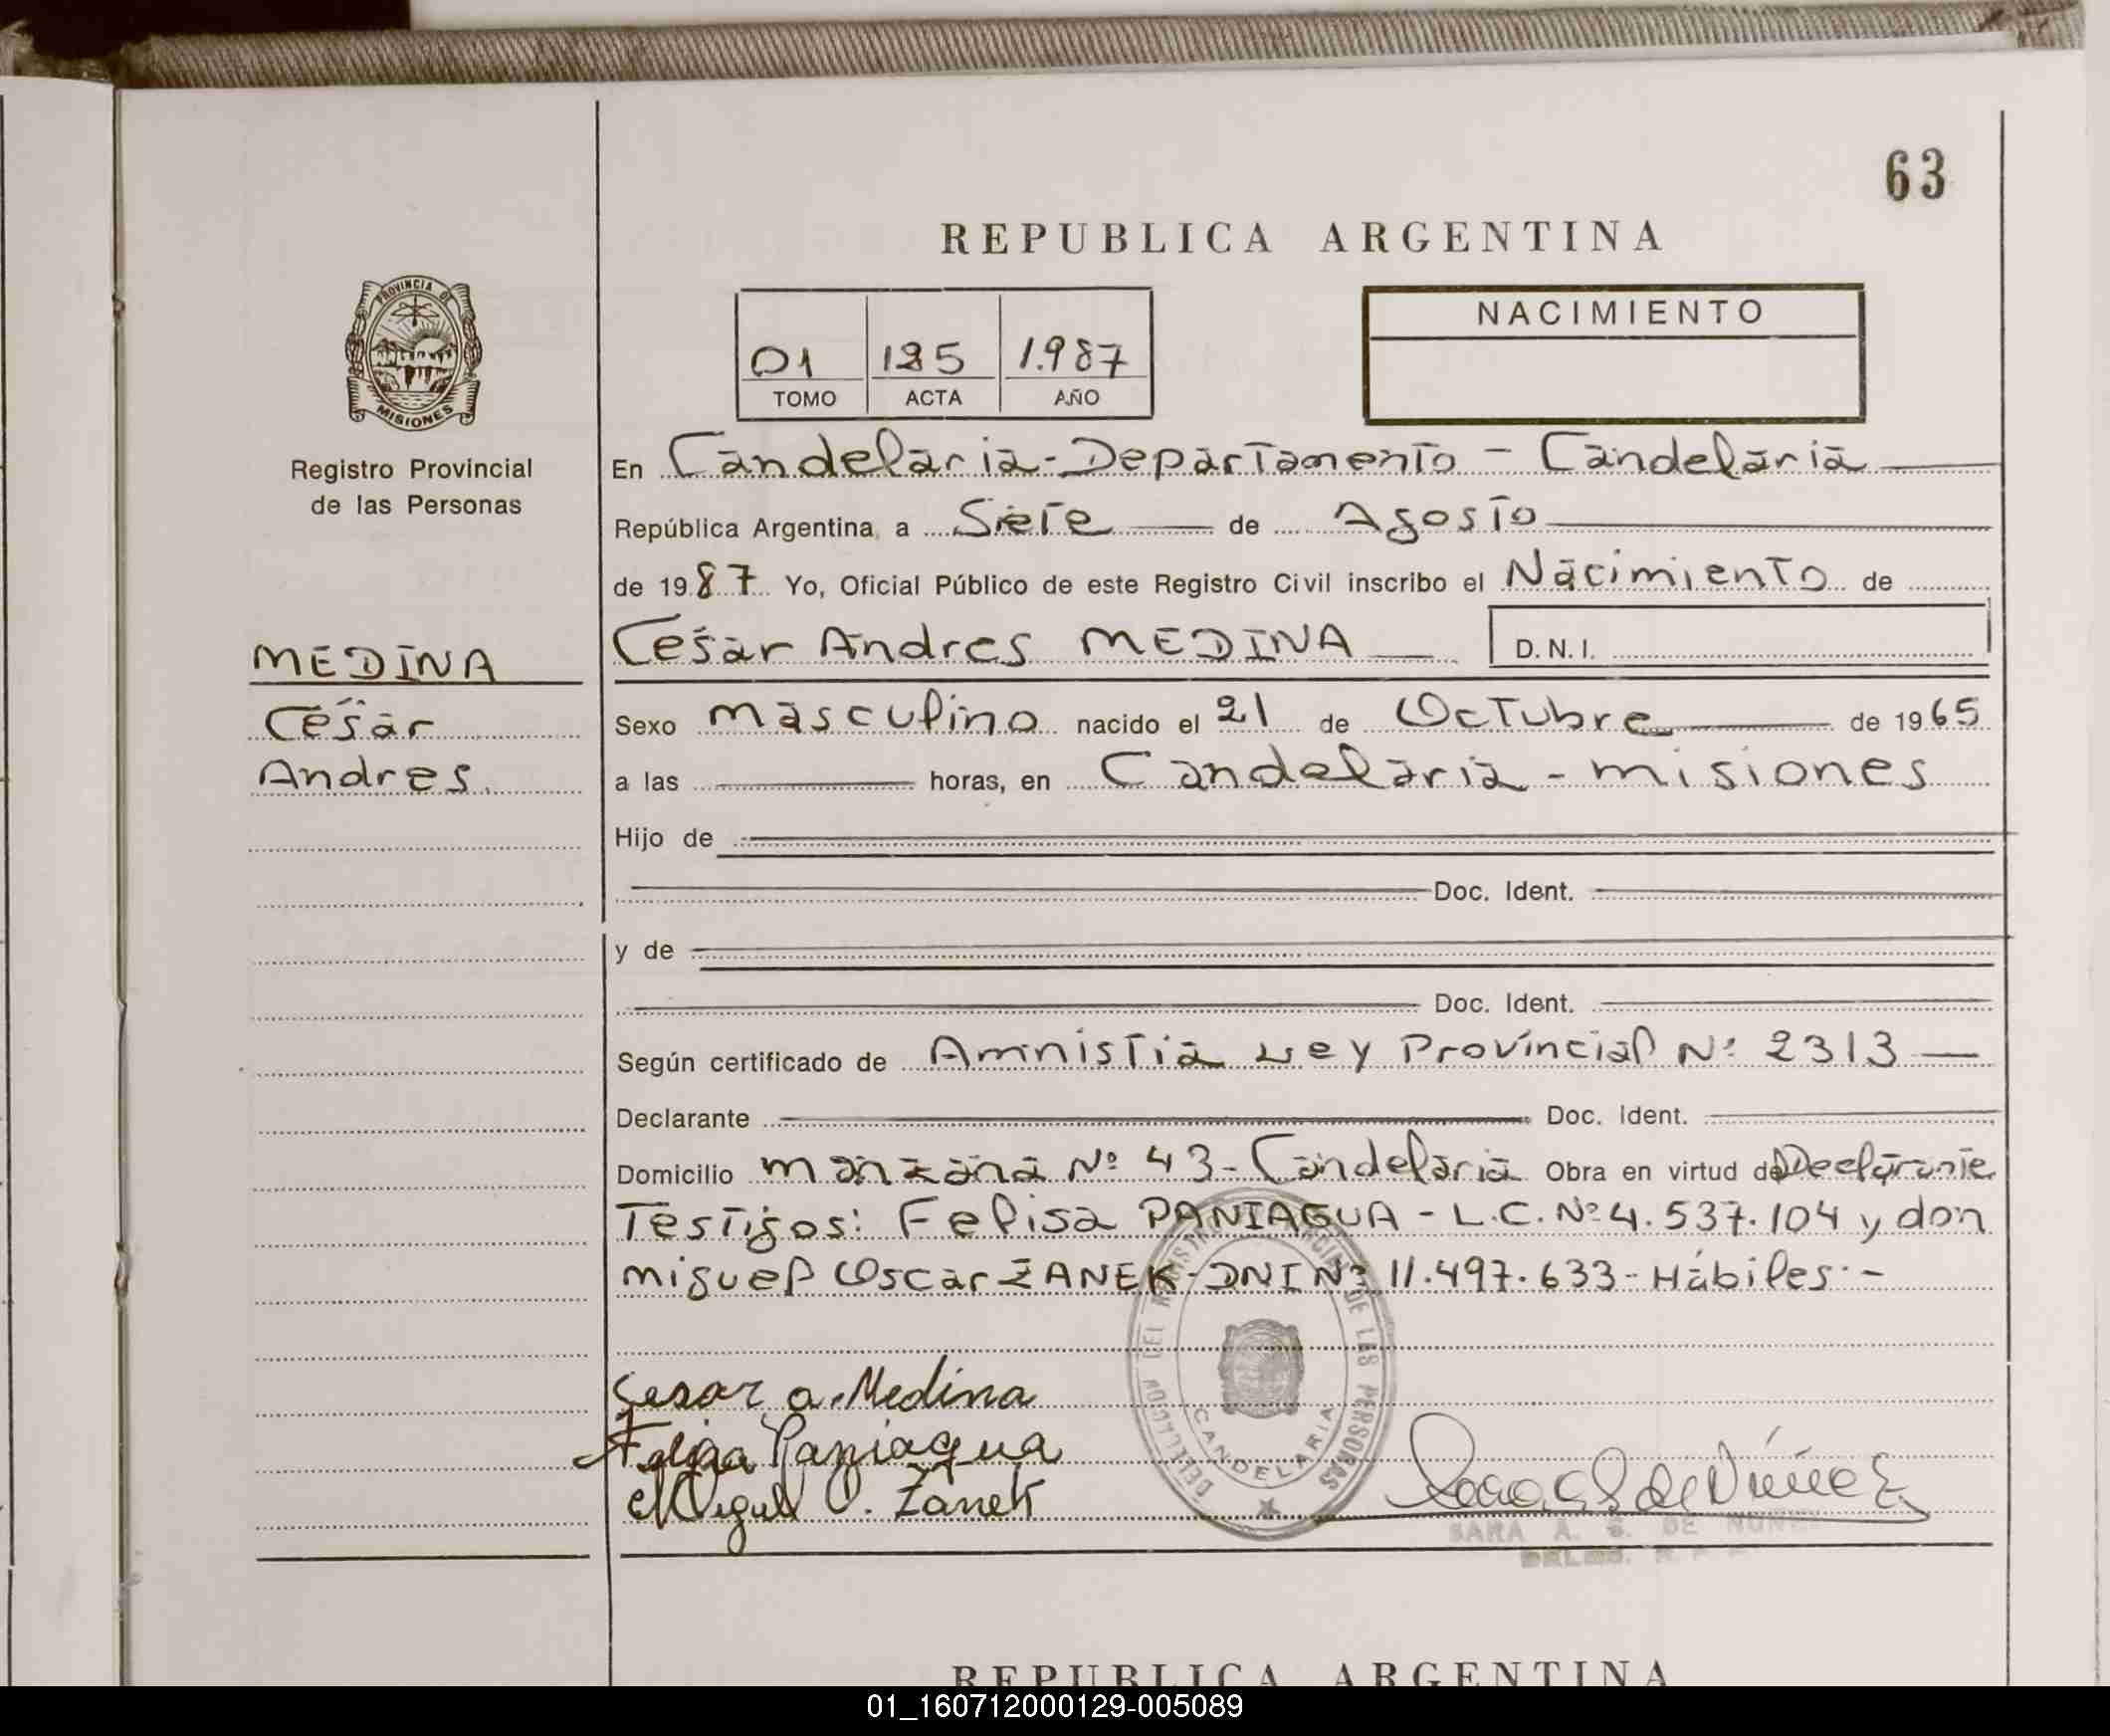 63
REPUBLICA ARGENTINA
PROVINCIA DE
MISIONES
Registro Provincial
de las Personas
01 125 1.987
TOMO ACTA AÑO
NACIMIENTO
En Candelaria - Departamento - Candelaria
República Argentina, a Siete de Agosto
de 1987 Yo, Oficial Público de este Registro Civil inscribo el Nacimiento de
MEDINA
César
Andres
César Andres MEDINA D.N.I.
Sexo masculino nacido el 21 de Octubre de 1965
a las horas, en Candelaria - misiones
Hijo de
Doc. Ident.
y de
Doc. Ident.
Según certificado de Amnistia Ley Provincial Nº 2313
Declarante Doc. Ident.
Domicilio manzana Nº 43 - Candelaria Obra en virtud de Declarante
Testigos: Felisa PANIAGUA - L.C. Nº 4.537.104 y don
miguel Oscar ZANEK - DNI Nº 11.497.633 - Hábiles. -
Cesar a. Medina
Felisa Paniagua
Miguel O. Zanek
CANDELARIA
DE LAS PERSONAS
SARA A. G. DE NUÑEZ
REPUBLICA ARGENTINA
01_160712000129-005089